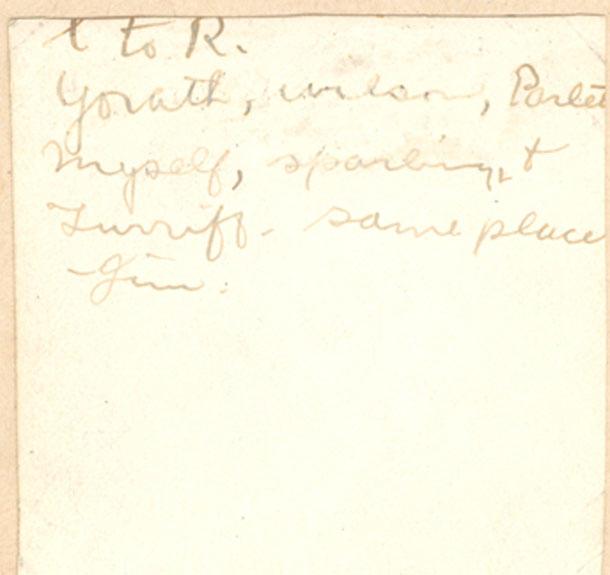 L to R.
Yorath, Wilson,
Myself, Sparling, &
Turriff - same place
- Jim.